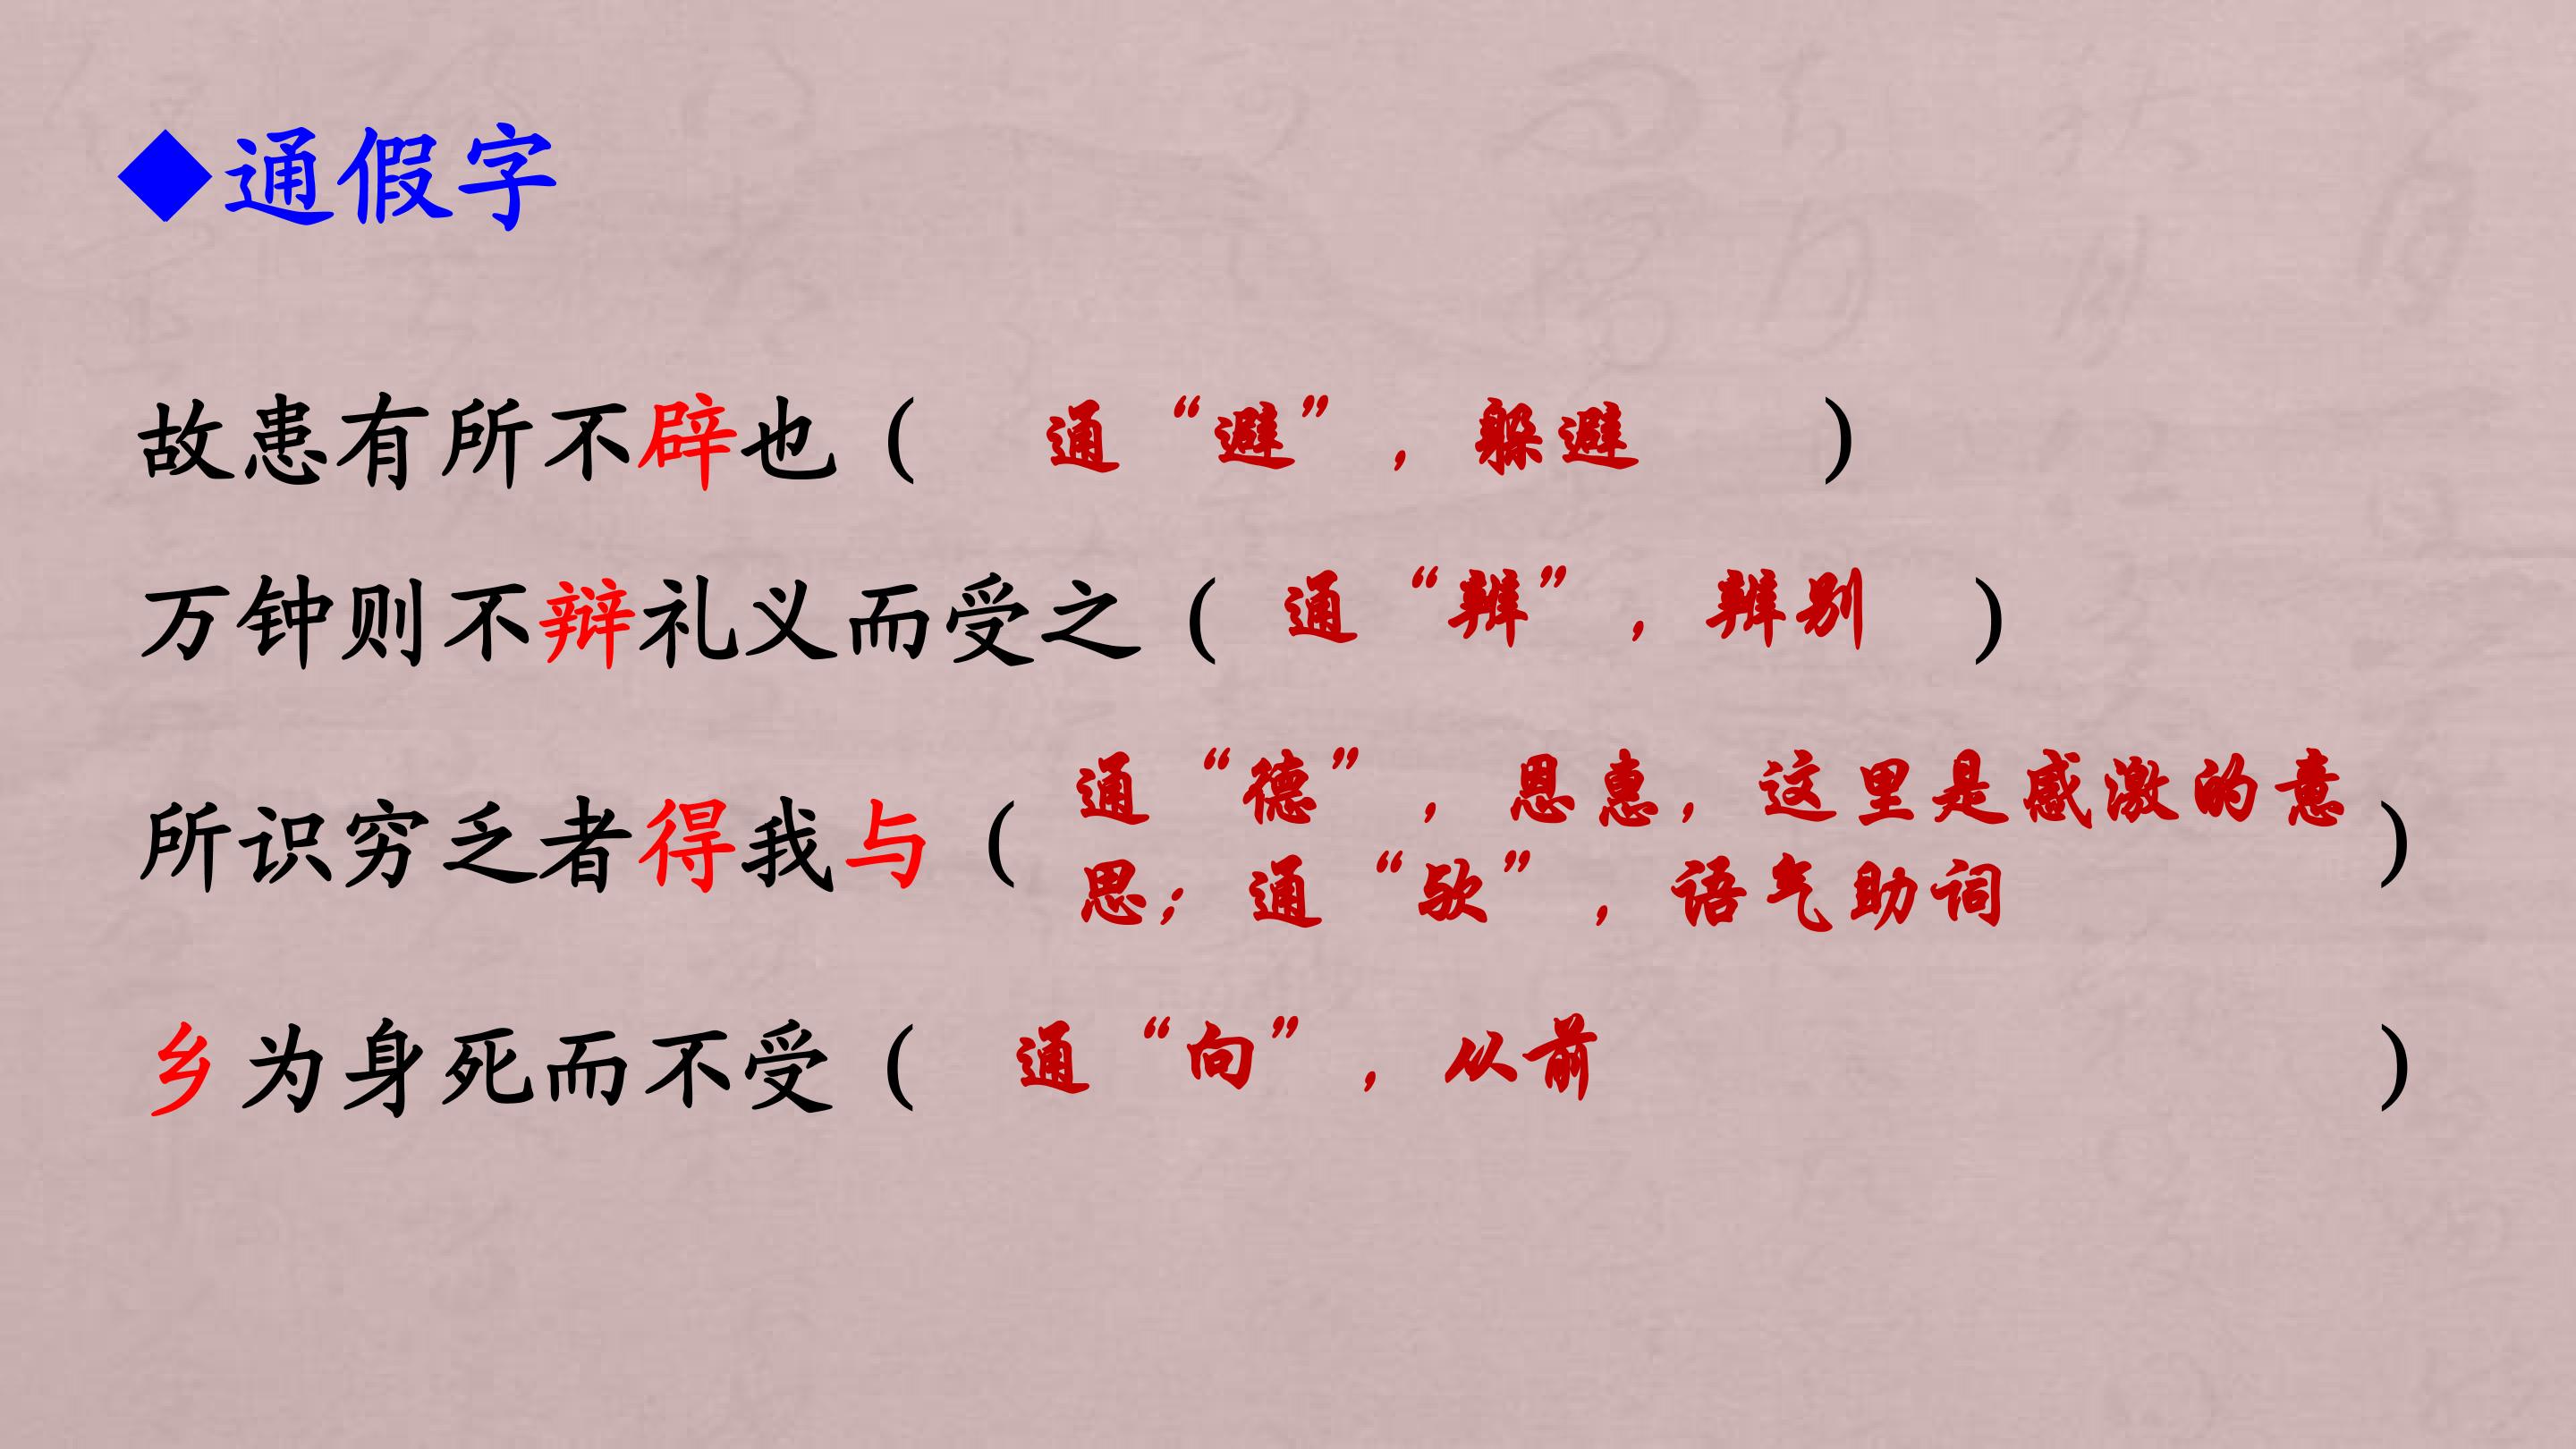 ◆通假字
故患有所不辟也（通“避”，躲避）
万钟则不辩礼义而受之（通“辨”，辨别）
所识穷乏者得我与（通“德”，恩惠，这里是感激的意
思；通“欤”，语气助词）
乡为身死而不受（通“向”，从前）